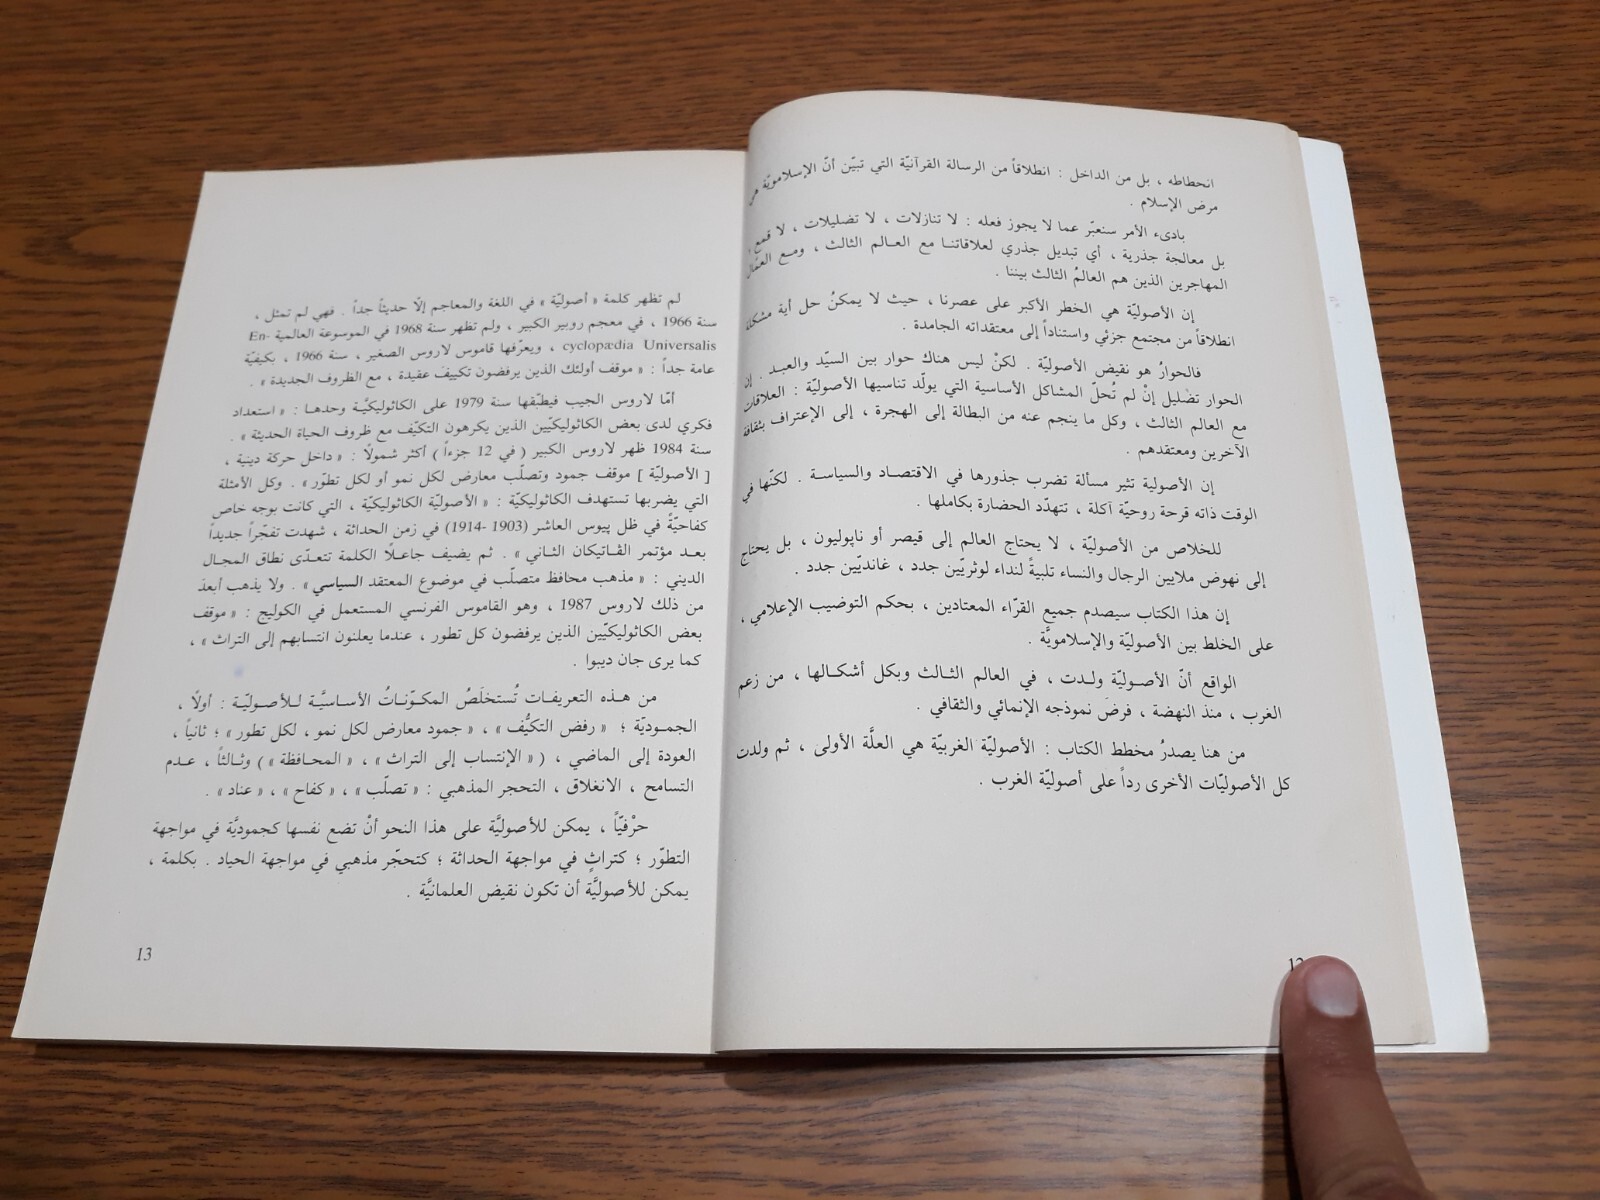 انحطاطه ، بل من الداخل : انطلاقاً من الرسالة القرآنيّة التي تبيّن أنّ الإسلامويّة هي
مرض الإسلام .
بادىء الأمر سنعبّر عما لا يجوز فعله : لا تنازلات ، لا تضليلات ، لا قمع ،
بل معالجة جذرية ، أي تبديل جذري لعلاقاتنا مع العالم الثالث ، ومع العمّال
المهاجرين الذين هم العالمُ الثالث بيننا .
إن الأصوليّة هي الخطر الأكبر على عصرنا ، حيث لا يمكنُ حل أية مشكلة
انطلاقاً من مجتمع جزئي واستناداً إلى معتقداته الجامدة .
فالحوارُ هو نقيض الأصوليّة . لكنْ ليس هناك حوار بين السيّد والعبد . إن
الحوار تضليل إنْ لم تُحلّ المشاكل الأساسية التي يولّد تناسيها الأصوليّة : العلاقات
مع العالم الثالث ، وكل ما ينجم عنه من البطالة إلى الهجرة ، إلى الإعتراف بثقافة
الآخرين ومعتقدهم .
إن الأصولية تثير مسألة تضرب جذورها في الاقتصاد والسياسة . لكنّها في
الوقت ذاته قرحة روحيّة آكلة ، تتهدّد الحضارة بكاملها .
للخلاص من الأصوليّة ، لا يحتاج العالم إلى قيصر أو ناپوليون ، بل يحتاج
إلى نهوض ملايين الرجال والنساء تلبيةً لنداء لوثريّين جدد ، غانديّين جدد .
إن هذا الكتاب سيصدم جميع القرّاء المعتادين ، بحكم التوضيب الإعلامي ،
على الخلط بين الأصوليّة والإسلامويَّة .
الواقع أنّ الأصوليّة ولدت ، في العالم الثالث وبكل أشكالها ، من زعم
الغرب ، منذ النهضة ، فرضَ نموذجه الإنمائي والثقافي .
من هنا يصدرُ مخطط الكتاب : الأصوليّة الغربيّة هي العلَّة الأولى ، ثم ولدت
كل الأصوليّات الأخرى رداً على أصوليّة الغرب .
لم تظهر كلمة « أصوليّة » في اللغة والمعاجم إلّا حديثاً جداً . فهي لم تمثل ،
سنة 1966 ، في معجم روبير الكبير ، ولم تظهر سنة 1968 في الموسوعة العالمية En-
cyclopædia Universalis ، ويعرّفها قاموس لاروس الصغير ، سنة 1966 ، بكيفيّة
عامة جداً : « موقف أولئك الذين يرفضون تكييفَ عقيدة ، مع الظروف الجديدة » .
أمّا لاروس الجيب فيطبّقها سنة 1979 على الكاثوليكيَّة وحدها : « استعداد
فكري لدى بعض الكاثوليكيّين الذين يكرهون التكيّف مع ظروف الحياة الحديثة » .
سنة 1984 ظهر لاروس الكبير ( في 12 جزءاً ) أكثر شمولًا : « داخل حركة دينية ،
[ الأصوليّة ] موقف جمود وتصلّب معارض لكل نمو أو لكل تطوّر » . وكل الأمثلة
التي يضربها تستهدف الكاثوليكيّة : « الأصوليّة الكاثوليكيّة ، التي كانت بوجه خاص
كفاحيّةً في ظل پيوس العاشر (1903 -1914) في زمن الحداثة ، شهدت تفجّراً جديداً
بعد مؤتمر الڤاتيكان الثاني » . ثم يضيف جاعلًا الكلمة تتعدّى نطاق المجال
الديني : « مذهب محافظ متصلّب في موضوع المعتقد السياسي » . ولا يذهب أبعدَ
من ذلك لاروس 1987 ، وهو القاموس الفرنسي المستعمل في الكوليج : « موقف
بعض الكاثوليكيّين الذين يرفضون كل تطور ، عندما يعلنون انتسابهم إلى التراث » ،
كما يرى جان ديبوا .
من هذه التعريفات تُستخلَصُ المكوّناتُ الأساسيَّة للأصوليّة : أولًا ،
الجموديّة ؛ « رفض التكيُّف » ، « جمود معارض لكل نمو ، لكل تطور » ؛ ثانياً ،
العودة إلى الماضي ، ( « الإنتساب إلى التراث » ، « المحافظة » ) وثالثاً ، عدم
التسامح ، الانغلاق ، التحجر المذهبي : « تصلّب » ، « كفاح » ، « عناد » .
حرْفيّاً ، يمكن للأصوليَّة على هذا النحو أنْ تضع نفسها كجموديَّة في مواجهة
التطوّر ؛ كتراثٍ في مواجهة الحداثة ؛ كتحجّر مذهبي في مواجهة الحياد . بكلمة ،
يمكن للأصوليَّة أن تكون نقيض العلمانيَّة .
13